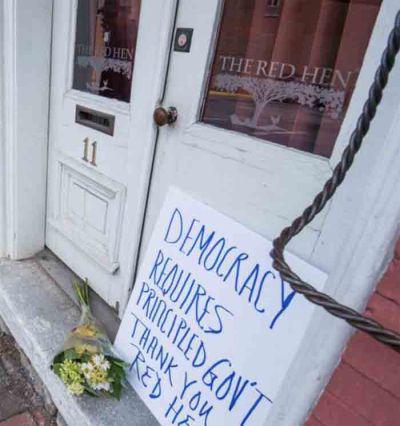 THE RED HEN
THE RED HEN
11
DEMOCRACY
REQUIRES
PRINCIPLED GOV'T
THANK YOU
RED HE